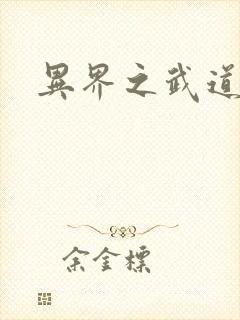 異界之武道
余金標